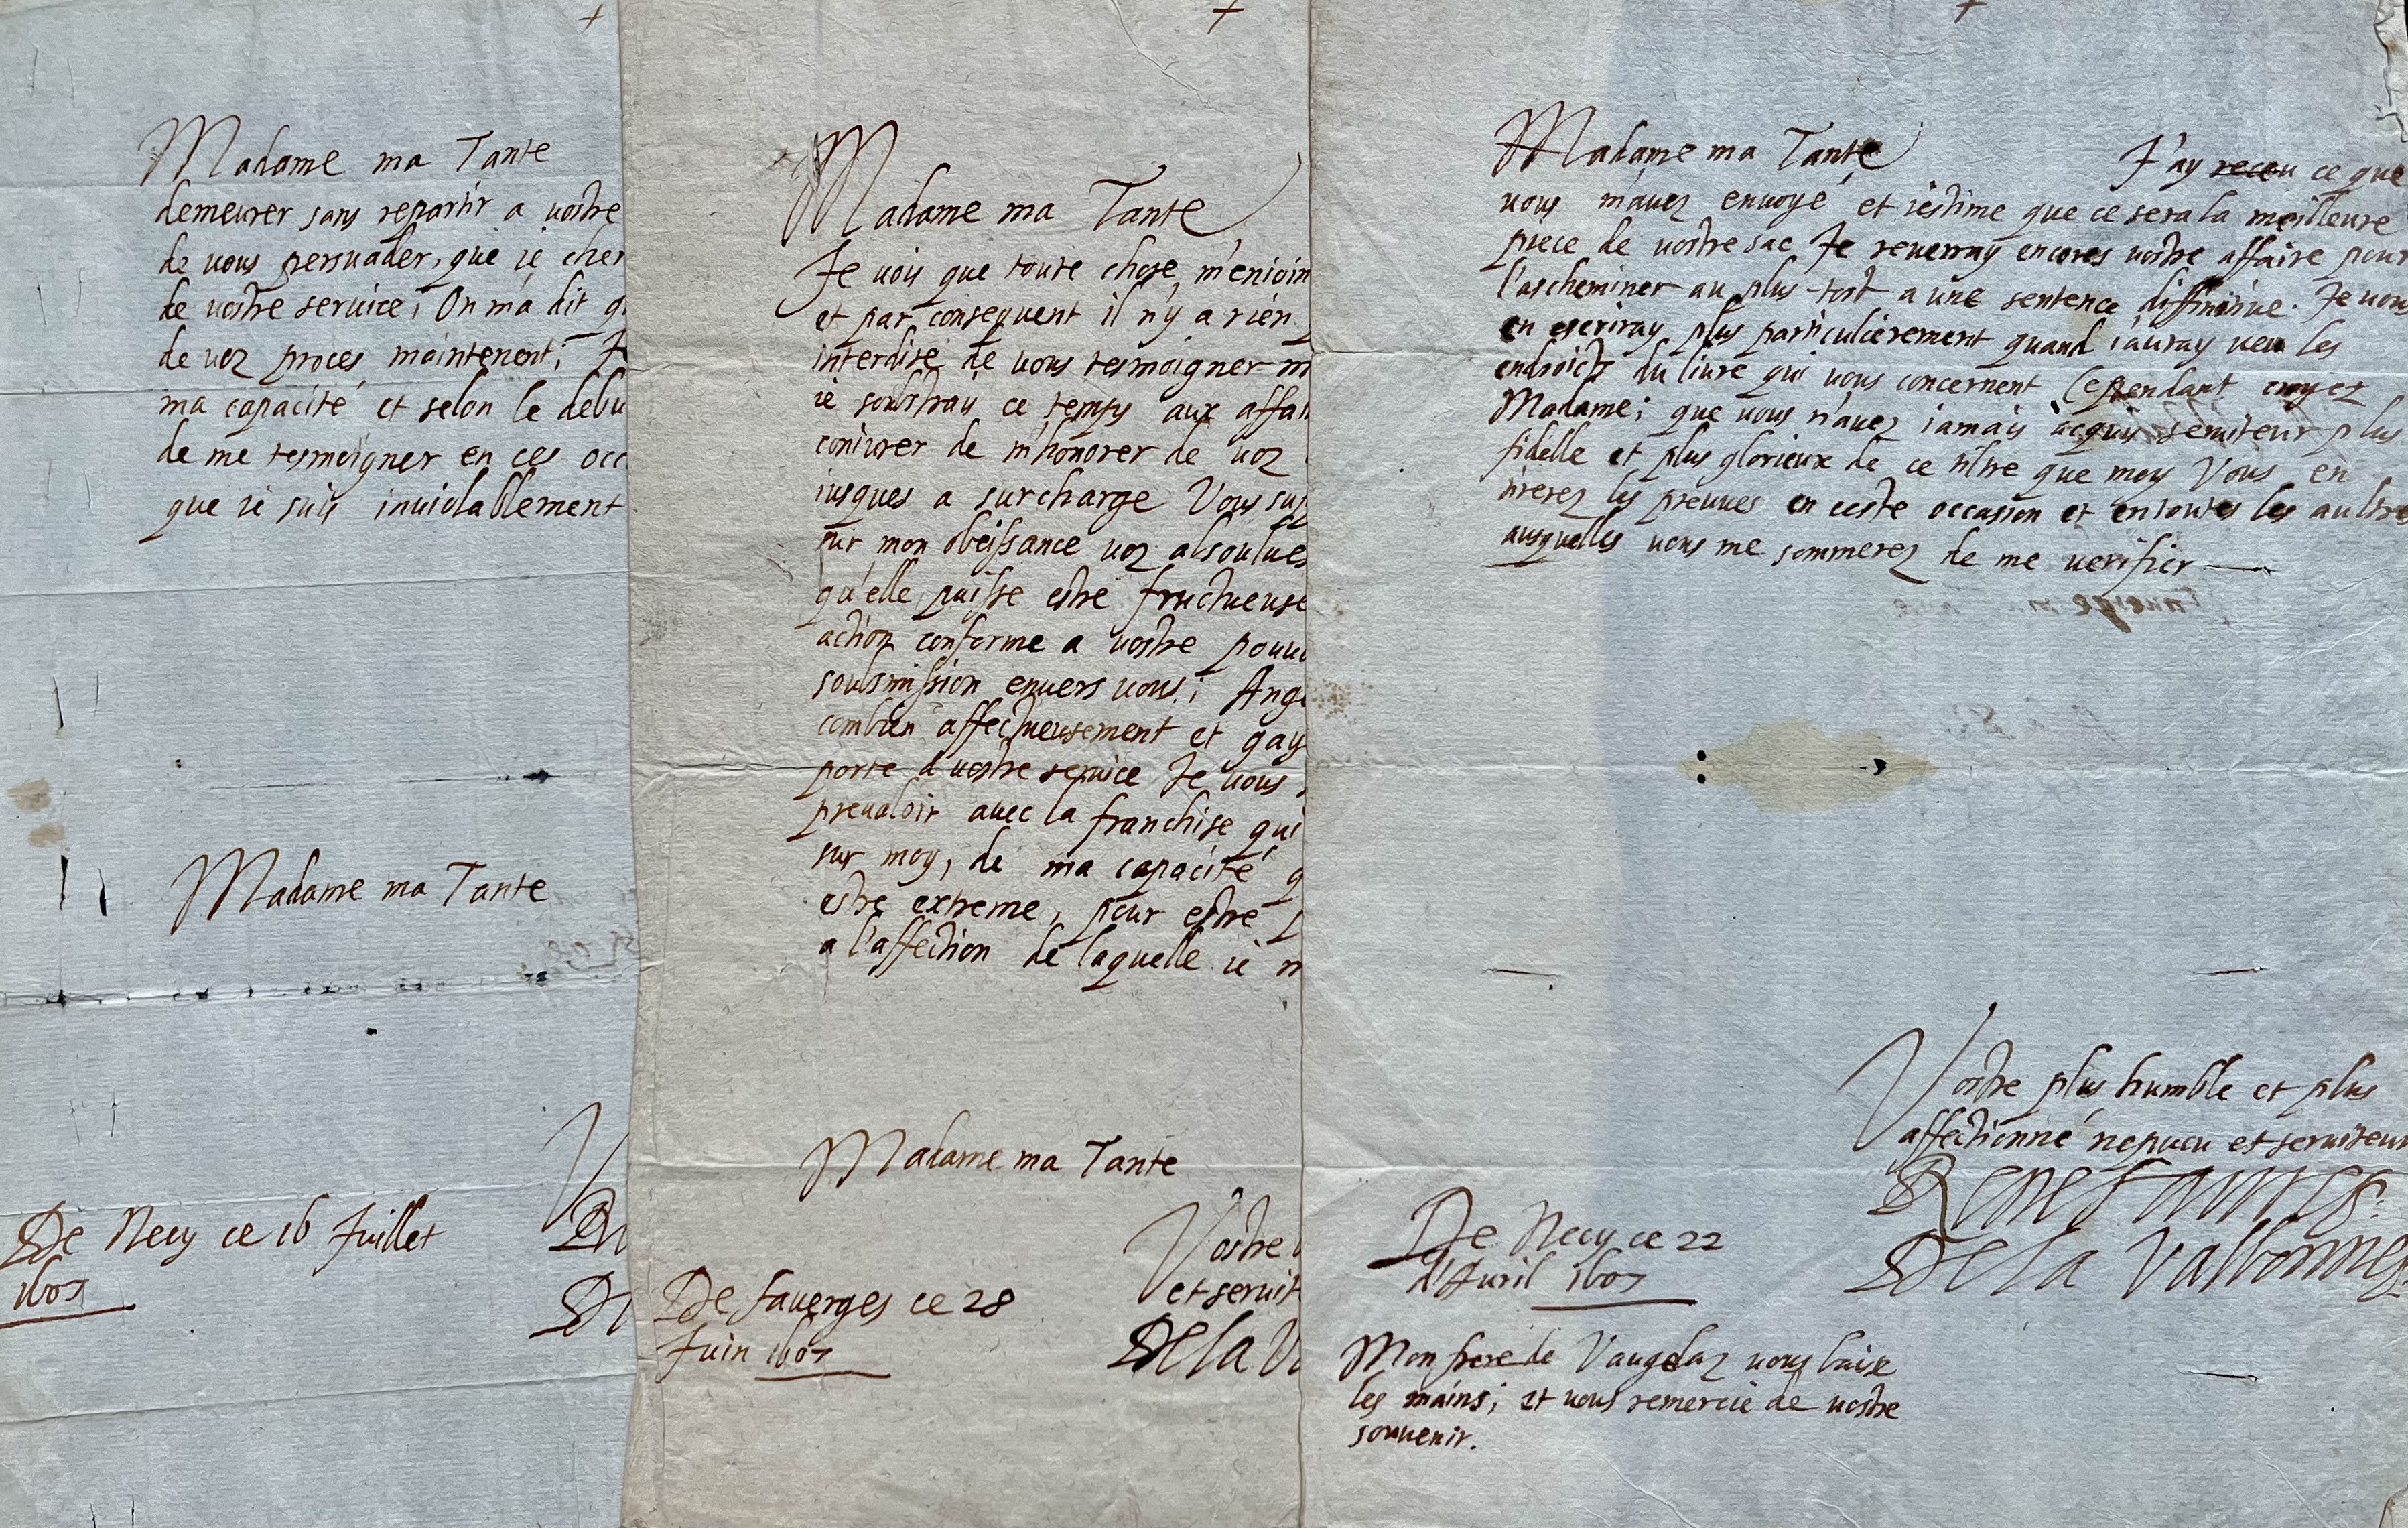 Madame ma Tante
demeurer sans repartir a vostre
de vous persuader, que ie cher
de vostre service; On m'a dit q
de voz proces maintenent; Je
ma capacité et selon le debu
de me tesmoigner en ces occ
que ie suis inviolablement
Madame ma Tante
De Necy ce 16 Juillet
1607
Madame ma Tante
Je vois que toute chose m'enioin
et par consequent il n'y a rien
interdise de vous tesmoigner m
ie soubstray ce temps aux affai
coniurer de m'honorer de voz
iusques a surcharge Vous sup
sur mon obeissance voz absolues
qu'elle puisse estre fructueuse
action conforme a vostre pouvo
soubsmission envers vous; Ange
combien affectueusement et gay
porte a vostre service Je vous
prevaloir avec la franchise qui
sur moy, de ma capacité q
estre extreme, pour estre p
a l'affection de laquelle ie m
Madame ma Tante
Vostre
et servit
De la V
De faverges ce 28
Juin 1607
Madame ma Tante J'ay receu ce que
vous m'avez envoyé et iestime que ce sera la meilleure
piece de vostre sac Je reverray encores vostre affaire pour
l'ascheminer au plus-tost a une sentence diffinitive. Je vous
en escriray plus particulierement quand i'auray veu les
endroictz du livre qui vous concernent Cependant croyez
Madame; que vous n'avez iamais acquis serviteur plus
fidelle et plus glorieux de ce tiltre que moy Vous en
tirerez les preuves en ceste occasion et en toutes les aultres
ausquelles vous me sommerez de me verifier
Vostre plus humble et plus
affectionné nepveu et serviteur
Rene favre
De la Valbonne
De Necy ce 22
d'Avril 1607
Mon frere de Vaugelaz vous baise
les mains; et vous remercie de vostre
souvenir.